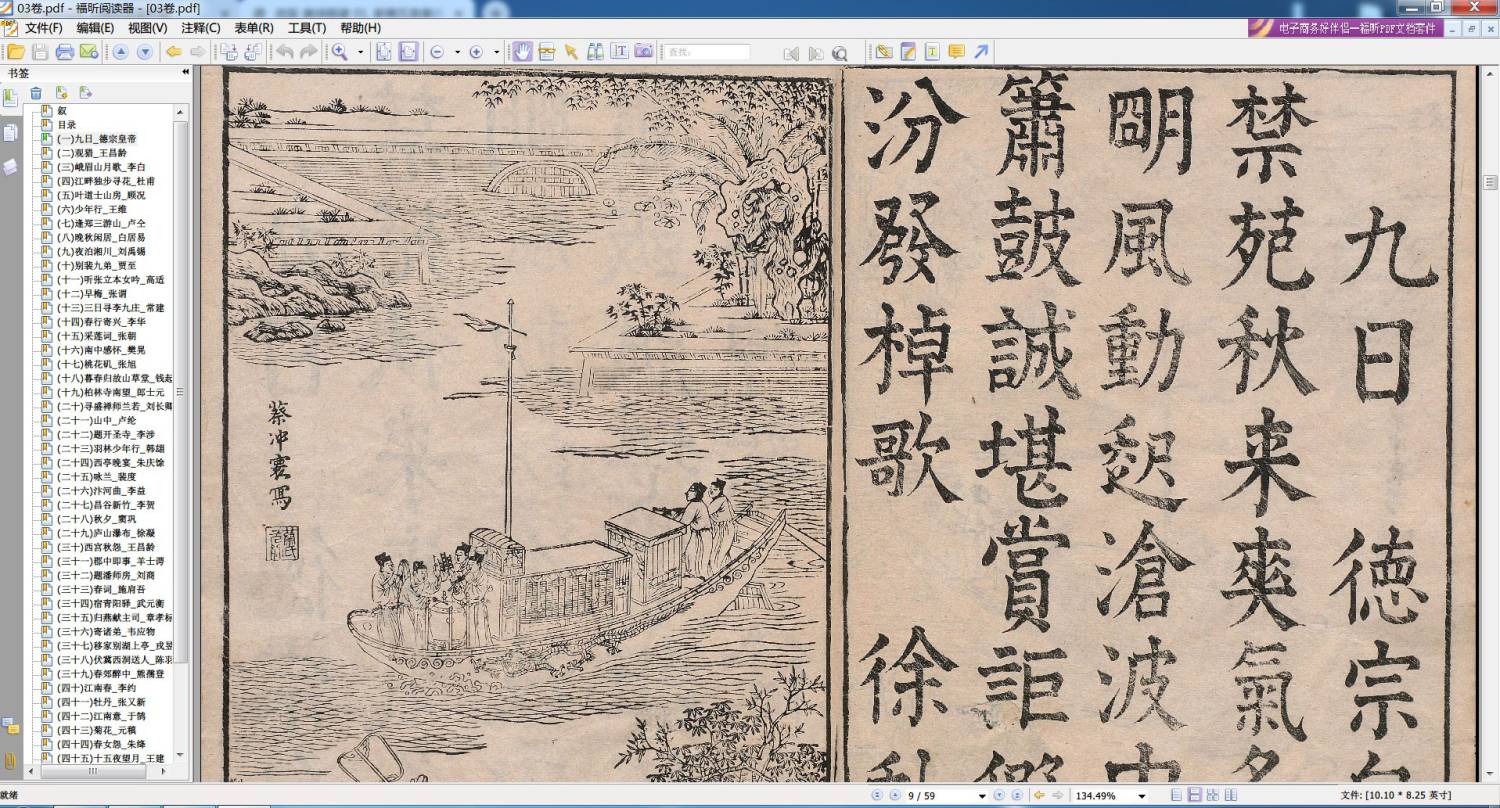 03卷.pdf - 福昕阅读器 - [03卷.pdf]
文件(F) 编辑(E) 视图(V) 注释(C) 表单(R) 工具(T) 帮助(H)
电子商务好伴侣—福昕PDF文档套件
查找:
书签
叙
目录
(一)九日_德宗皇帝
(二)观猎_王昌龄
(三)峨眉山月歌_李白
(四)江畔独步寻花_杜甫
(五)叶道士山房_顾况
(六)少年行_王维
(七)逢郑三游山_卢仝
(八)晚秋闲居_白居易
(九)夜泊湘川_刘禹锡
(十)别裴九弟_贾至
(十一)听张立本女吟_高适
(十二)早梅_张谓
(十三)三日寻李九庄_常建
(十四)春行寄兴_李华
(十五)采莲词_张朝
(十六)南中感怀_樊晃
(十七)桃花矶_张旭
(十八)暮春归故山草堂_钱起
(十九)柏林寺南望_郎士元
(二十)寻盛禅师兰若_刘长卿
(二十一)山中_卢纶
(二十二)题开圣寺_李涉
(二十三)羽林少年行_韩翃
(二十四)西亭晚宴_朱庆馀
(二十五)咏兰_裴度
(二十六)汴河曲_李益
(二十七)昌谷新竹_李贺
(二十八)秋夕_窦巩
(二十九)庐山瀑布_徐凝
(三十)西宫秋怨_王昌龄
(三十一)郡中即事_羊士谔
(三十二)题潘师房_刘商
(三十三)春词_施肩吾
(三十四)宿青阳驿_武元衡
(三十五)归燕献主司_章孝标
(三十六)寄诸弟_韦应物
(三十七)移家别湖上亭_戎昱
(三十八)伏冀西洞送人_陈羽
(三十九)春郊醉中_熊孺登
(四十)江南春_李约
(四十一)牡丹_张又新
(四十二)江南意_于鹄
(四十三)菊花_元稹
(四十四)春女怨_朱绛
(四十五)十五夜望月_王建
九日 德宗
禁苑秋来爽氣
明風動起滄波
簫鼓誠堪賞詎
汾發棹歌 徐
蔡冲寰寫
就绪
9 / 59
134.49%
文件: [10.10 * 8.25 英寸]